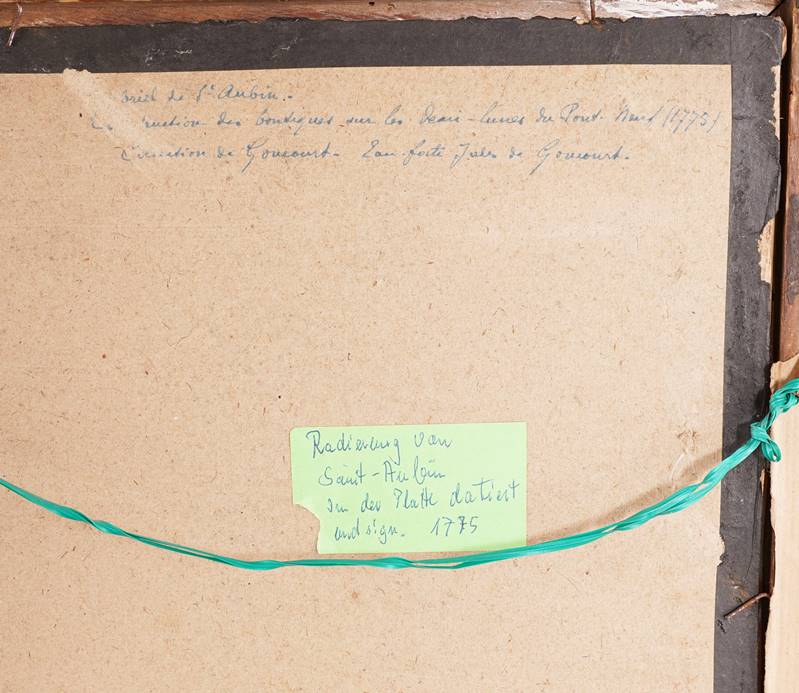 briel de St Aubin.-
truction des boutiques sur les demi-lunes du Pont-Neuf (1775)
de Goncourt. Eau-forte Jules de Goncourt.
Radierung von
Saint-Aubin
In der Platte datiert
und sign. 1775